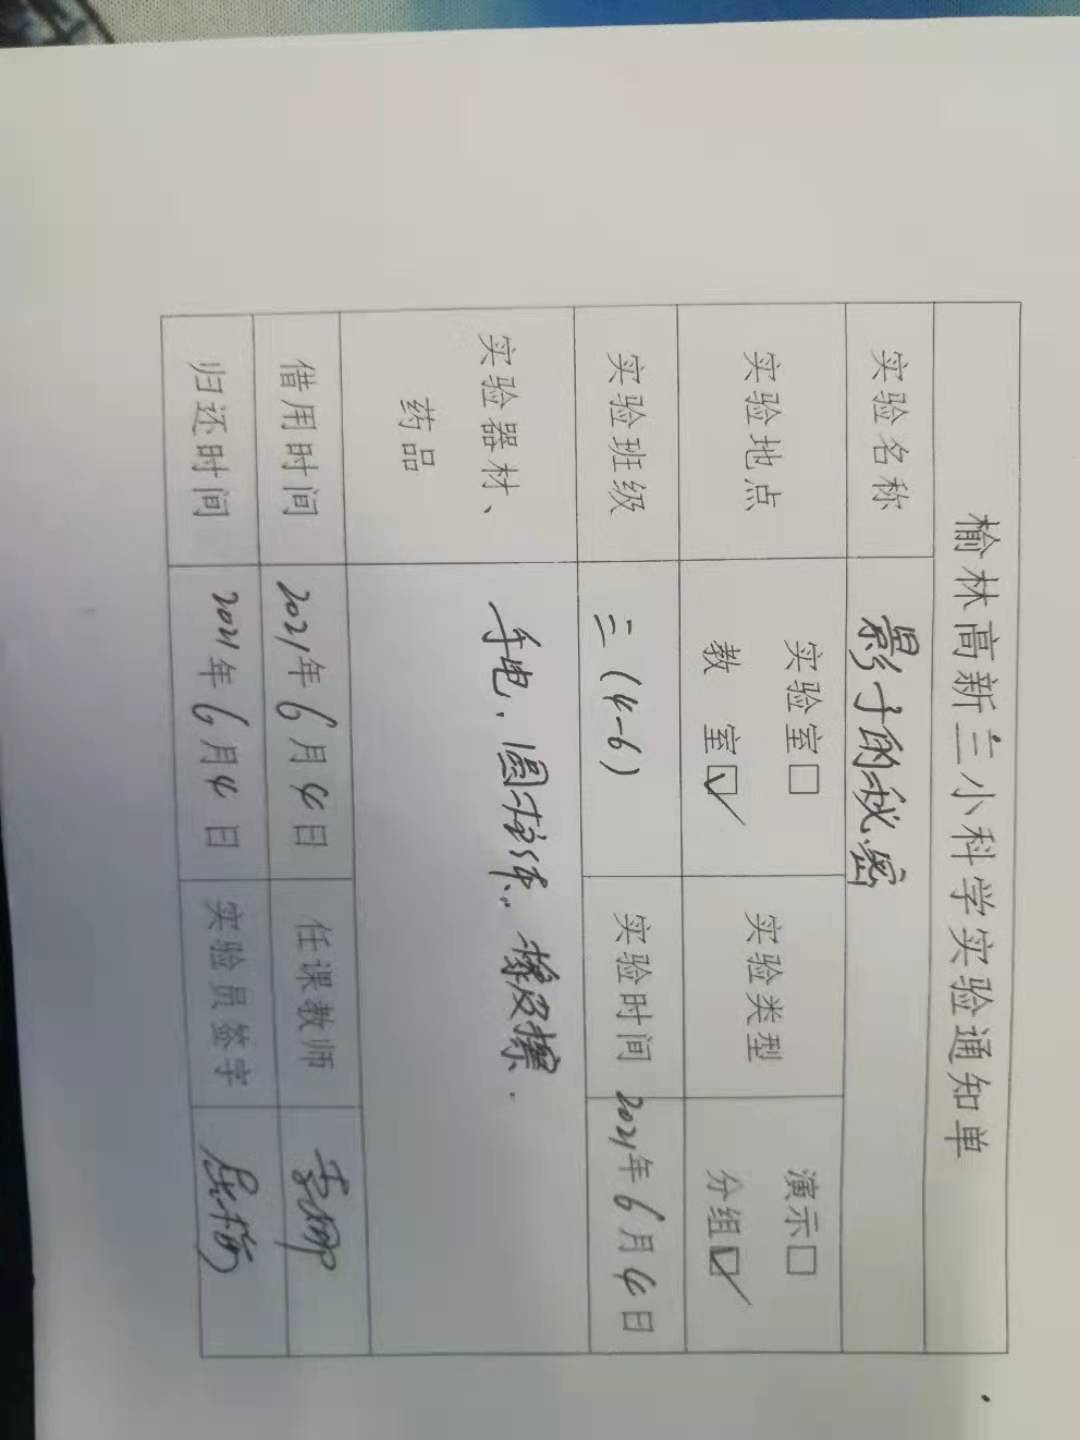 榆林高新三小科学实验通知单
实验名称 影子的秘密
实验地点 实验室□ 教 室☑ 实验类型 演示□ 分组☑
实验班级 三(4-6) 实验时间 2021年6月4日
实验器材、药品 手电、圆柱体、橡皮擦.
借用时间 2021年6月4日 任课教师
归还时间 2021年6月4日 实验员签字